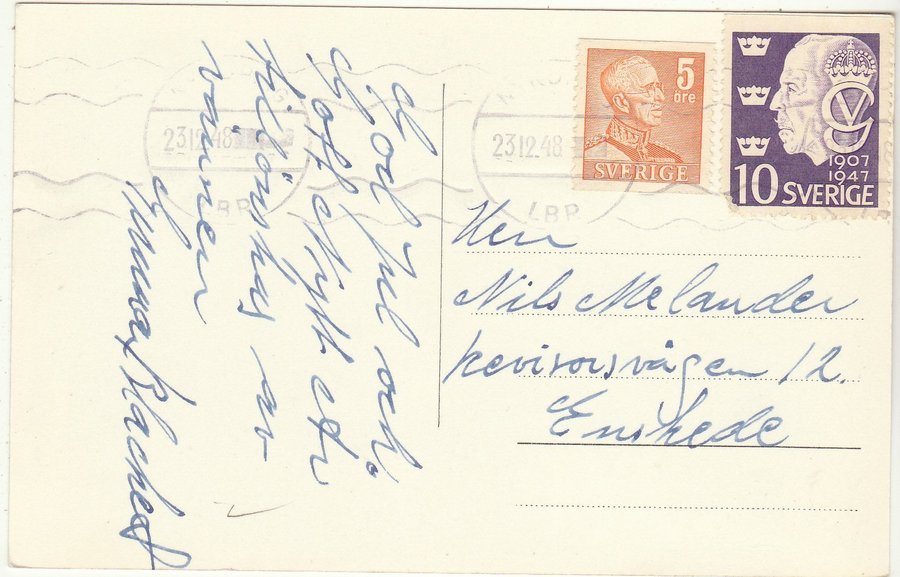 God Jul och
Gott Nytt År
tillönskas av
vännen
Gunnar
Herr
Nils Melander
Revisorsvägen 12.
Enskede
23.12.48
LBP
23.12.48
LBP
5
öre
SVERIGE
1907
1947
10 SVERIGE